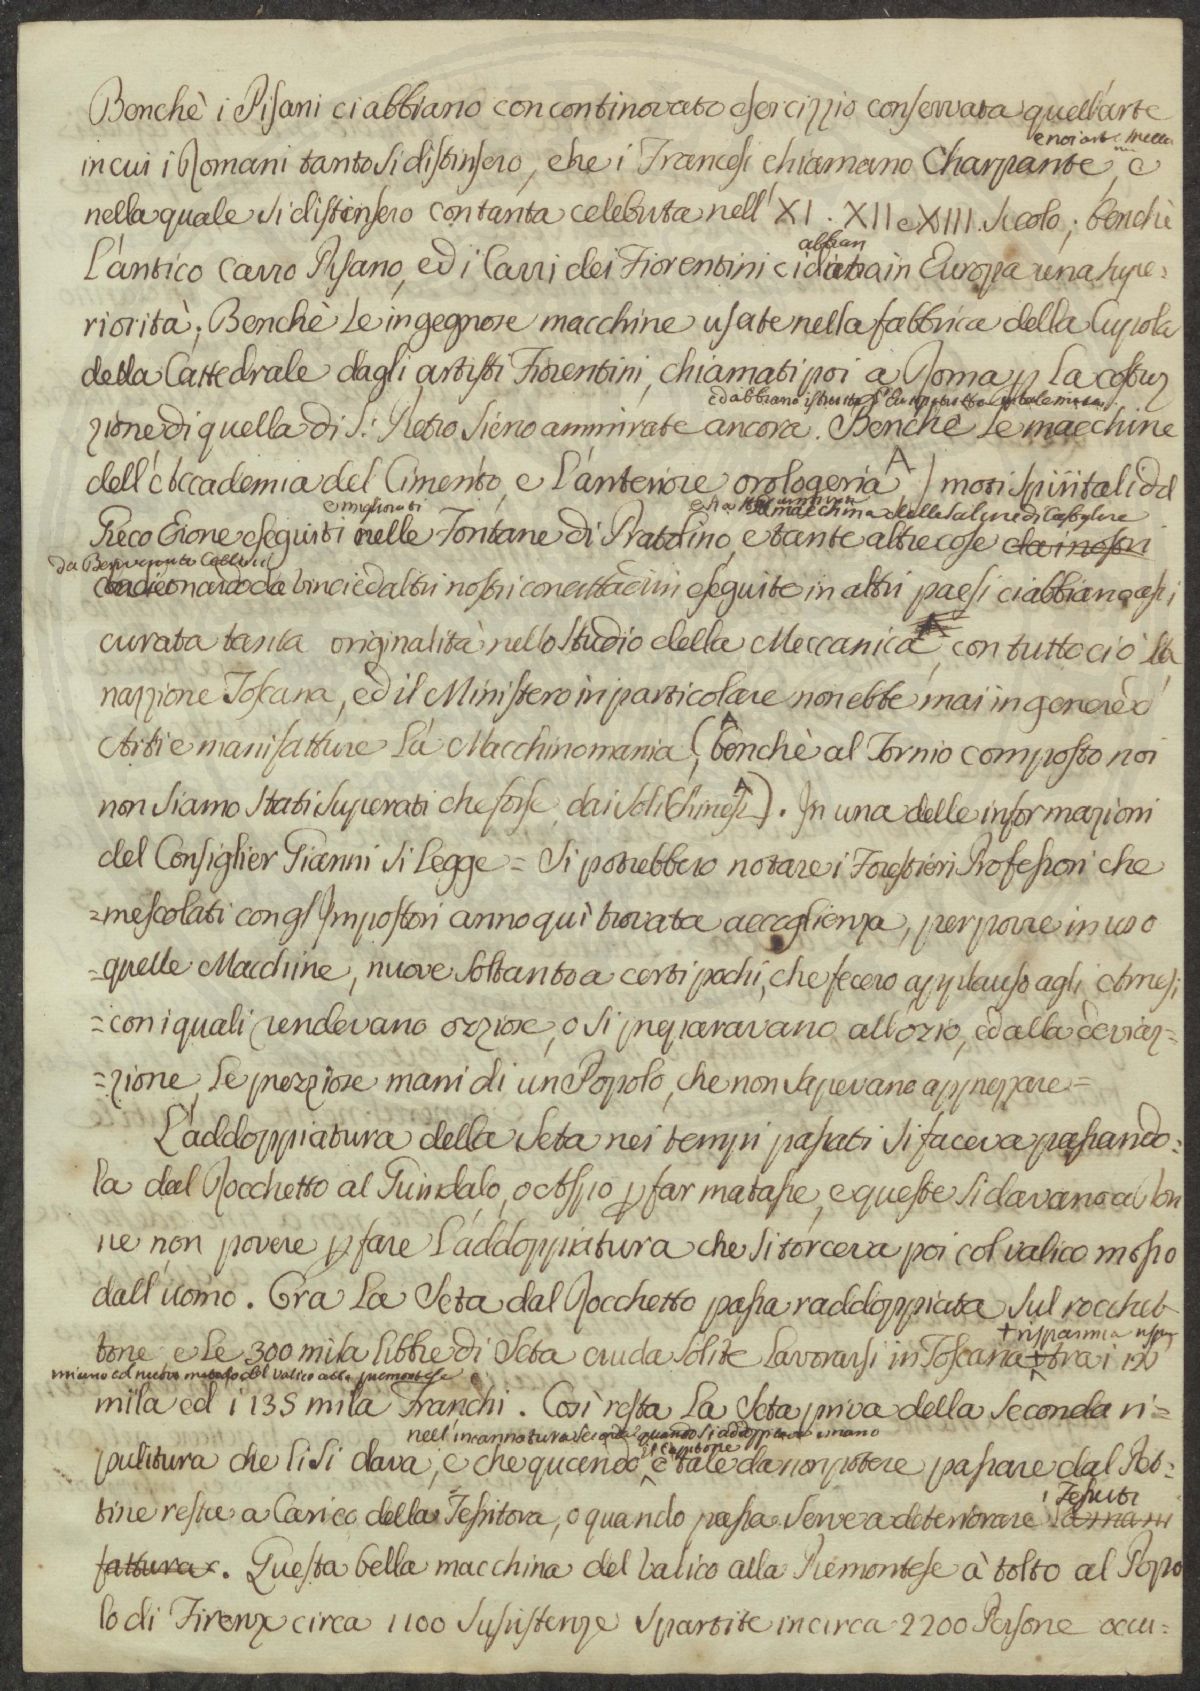 Benchè i Pisani ci abbiano con continovato esercizzio conservata quell'arte
e noi arte
in cui i Romani tanto si distinsero, che i Francesi chiamano Charpante, e
nella quale si distinsero con tanta celebrita nell' XI. XII e XIII. Secolo; benchè
abbian
L'antico Carro Pisano, ed i Carri dei Fiorentini ci in Europa una supe=
riorità; Benchè Le ingegnose macchine usate nella fabbrica della Cupola
della Cattedrale dagli artisti Fiorentini, chiamati poi a Roma p La costruz
ed abbiano istruita
zione di quella di S. Pietro Sieno ammirate ancora. Benchè Le macchine
dell'Accademia del Cimento, e L'anteriore orologeria A) moti Spiritali del
e migliorati
e la macchina delle Saline di
Greco Erone eseguiti nelle Fontane di Pratolino, e tante altre cose dai nostri
da Benvenuto Cellini
da Leonardo da Vinci ed altri nostri concittadini eseguite in altri paesi ci abbiano assi
curata tanta originalità nello Studio della Meccanica, con tutto ciò la
nazzione Toscana, ed il Ministero in particolare non ebbe mai in genere d'
Arti e manifatture La Macchinomania (benchè al Tornio composto noi
non Siamo Stati Superati che forse dai Soli Chinesi). In una delle informazioni
del Consiglier Gianni Si Legge = Si potrebbero notare i Forestieri Professori che
=mescolati con gl'Impostori anno qui trovata accoglienza, per porre in uso
=quelle Macchine, nuove Soltanto a certi pochi, che fecero applauso agli Arnesi
=con i quali rendevano ozziose, o Si preparavano all'ozio, ed alla deviaz=
=zione, Le prezziose mani di un Popolo, che non Sapevano apprezzare=
L'addoppiatura della Seta nei tempi passati Si faceva passando=
la dal Rocchetto al Guindalo, o Aspio p far matasse, e queste Si davano a Don
ne non povere p fare L'addoppiatura che Si torceva poi col valico mosso
dall'uomo. Ora La Seta dal Rocchetto passa raddoppiata Sul rocchet
+ risparmia
tone e Le 300 mila libbre di Seta cruda Solite Lavorarsi in Toscana + tra i 120
miano col nuovo metodo del valico alla piemontese
mila ed i 135 mila Franchi. Così resta La Seta priva della Seconda ri=
nell'incannatura Seconda quando Si addoppiava a mano
il Cantone
pulitura che Li Si dava, e che quando è tale da non potere passare dal Pet=
tine resta a Carico della Tessitora, o quando passa Serve a deteriorare i Tessuti La mani
fattura. Questa bella macchina del Valico alla Piemontese à tolto al Popo
lo di Firenze circa 1100 Sussistenze Spartite in circa 2200 Persone occu=